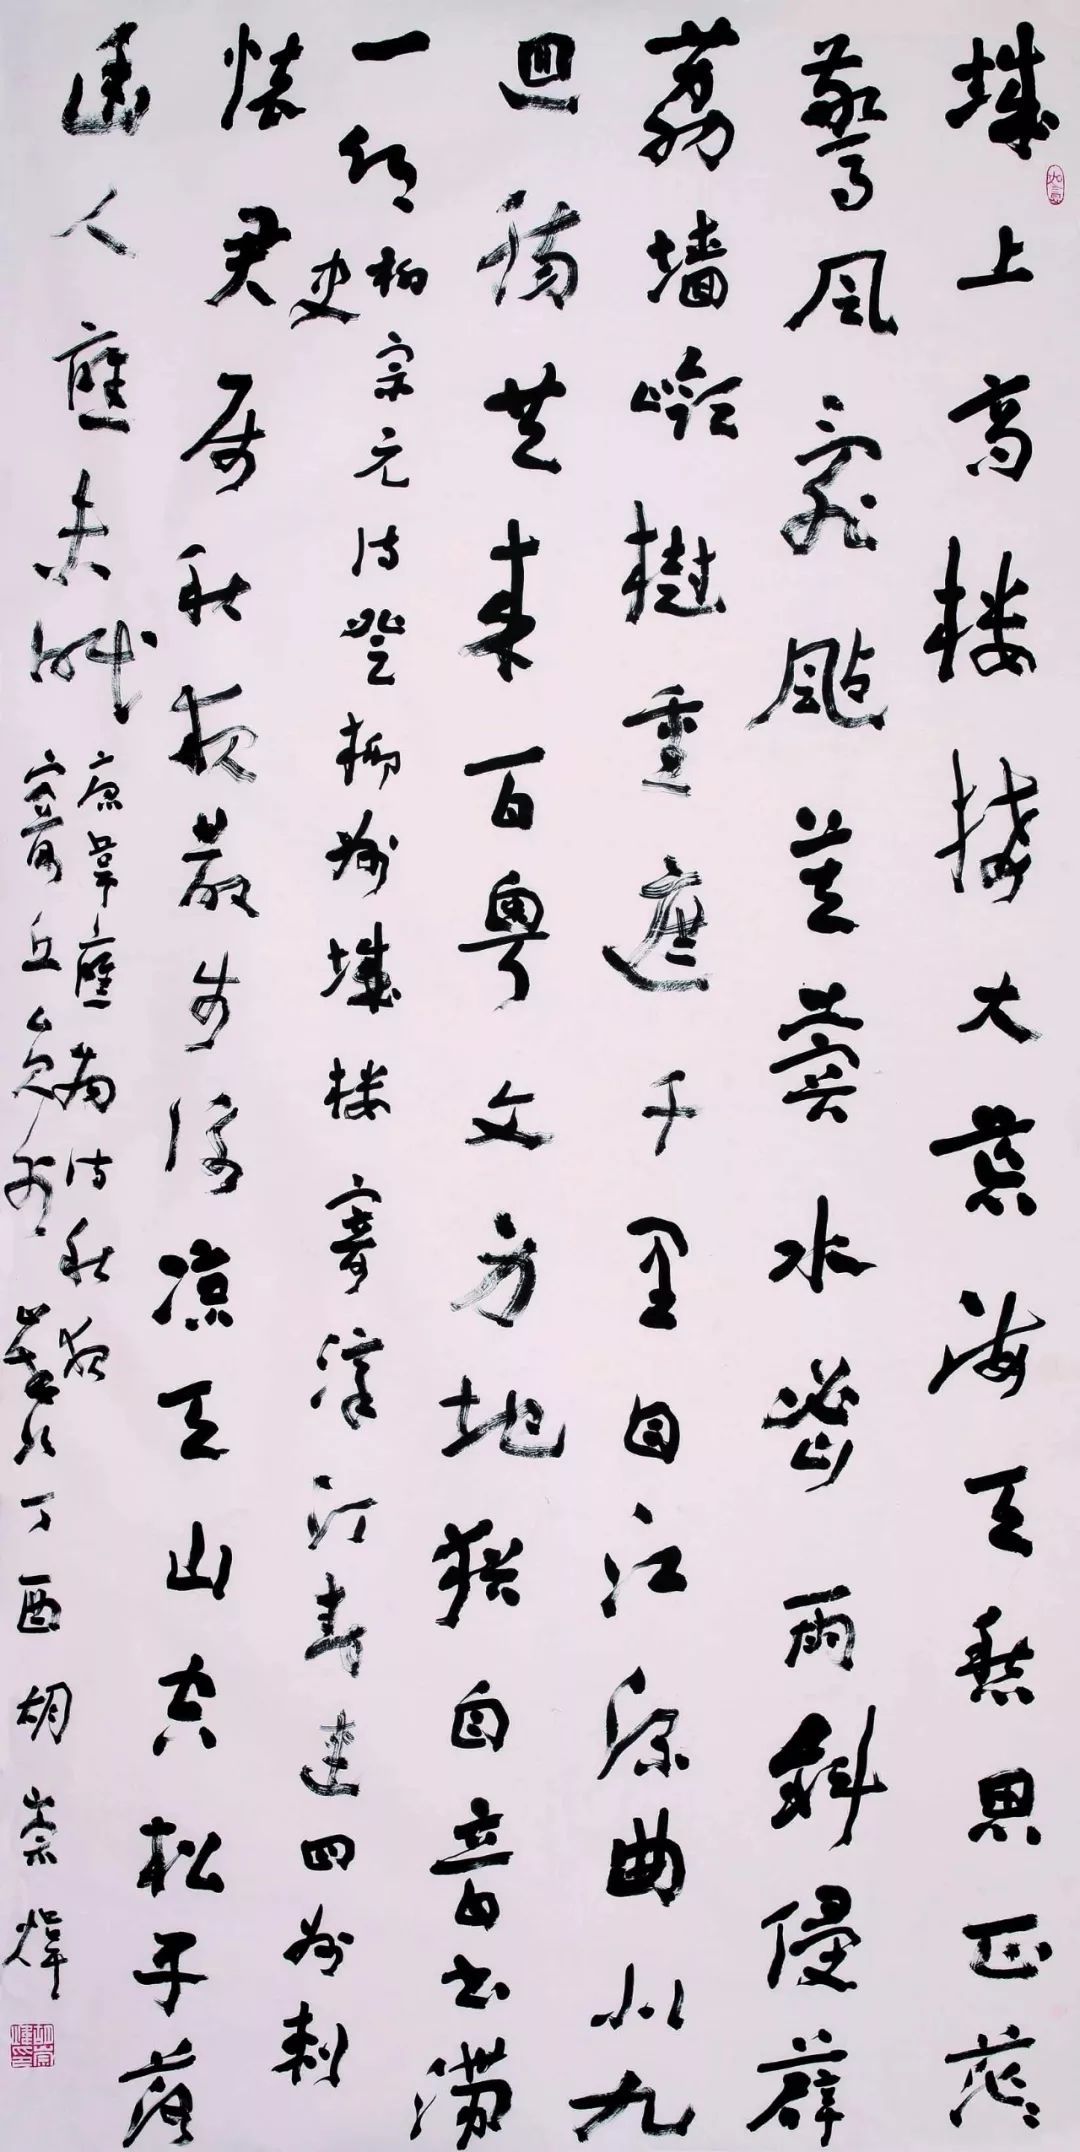 城上高楼接大荒海天愁思正茫〻
驚风亂颭芙蓉水密雨斜侵薜
荔墙嶺樹重遮千里目江流曲似九
迴腸共来百粤文身地猶自音书滞
一鄉 柳宗元诗登柳州城楼寄漳汀封连四州刺
史
懷君属秋夜散步詠凉天山空松子落
幽人應未眠 唐韋應物诗秋夜
寄丘員外 歲次丁酉胡崇煒